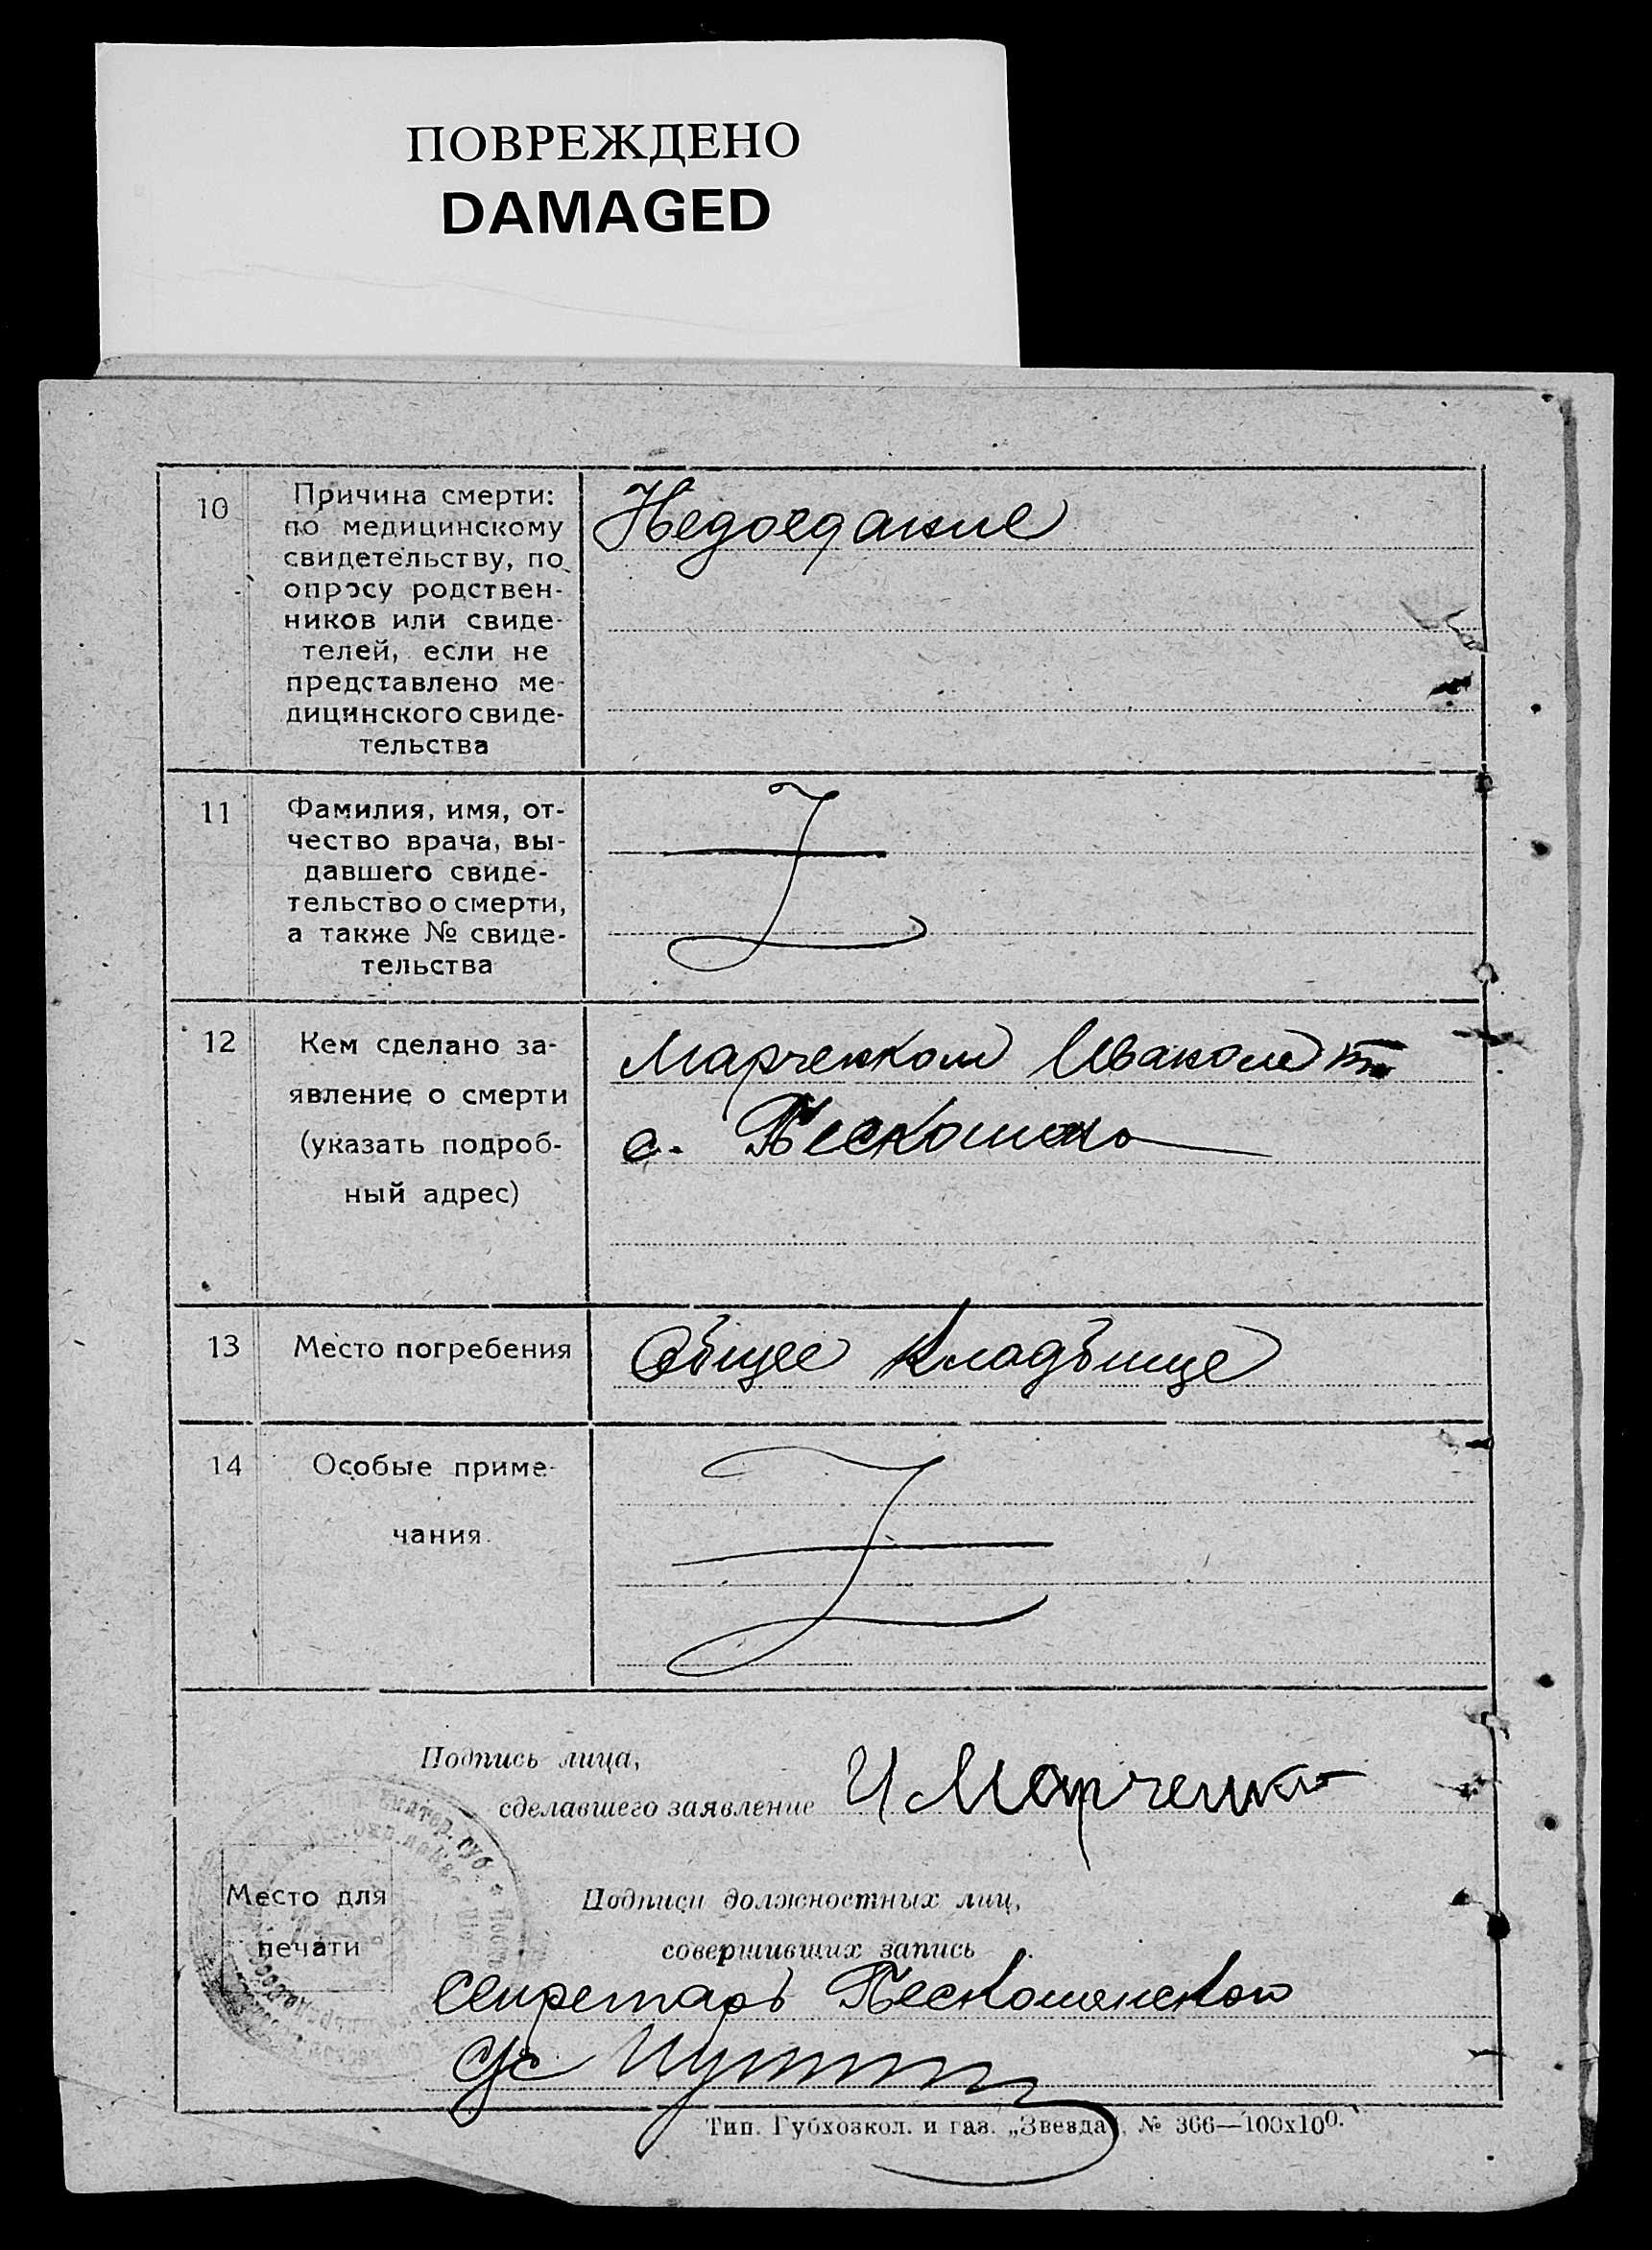 ПОВРЕЖДЕНО
DAMAGED
10
Причина смерти:
по медицинскому
свидетельству, по
опросу родствен-
ников или свиде-
телей, если не
представлено ме-
дицинского свиде-
тельства
Недоедание
11
Фамилия, имя, от-
чество врача, вы-
давшего свиде-
тельство о смерти,
а также № свиде-
тельства
12
Кем сделано за-
явление о смерти
(указать подроб-
ный адрес)
Марченком Иваном
с.
13
Место погребения
Общее кладбище
14
Особые приме-
чания
Подпись лица,
сделавшего заявление
И Марченко
Место для
печати
Подписи должностных лиц,
совершивших запись
Секретарь
с/с
Тип. Губхозкол. и газ. „Звезда", № 366—100х100.